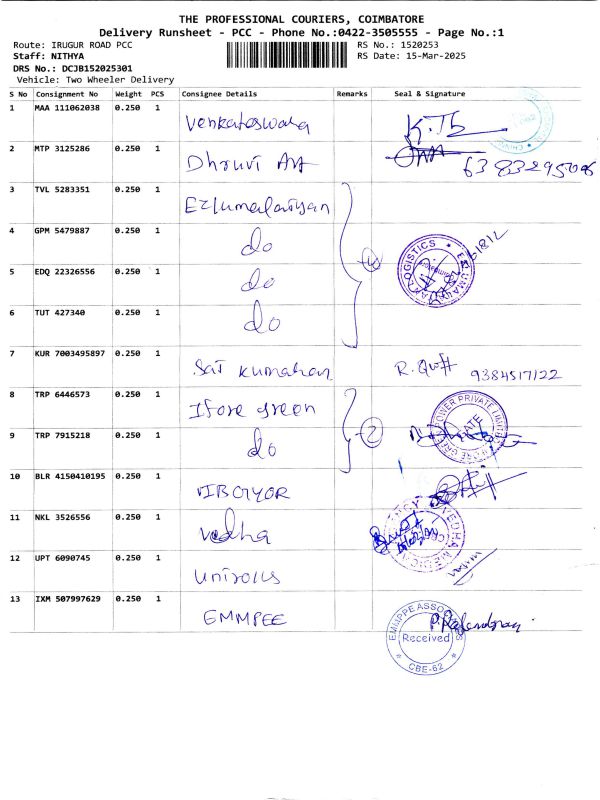 THE PROFESSIONAL COURIERS, COIMBATORE
Delivery Runsheet - PCC - Phone No.:0422-3505555 - Page No.:1
Route: IRUGUR ROAD PCC RS No.: 1520253
Staff: NITHYA RS Date: 15-Mar-2025
DRS No.: DCJB152025301
Vehicle: Two Wheeler Delivery
S No Consignment No Weight PCS Consignee Details Remarks Seal & Signature
1 MAA 111062038 0.250 1 Venkateswara
2 MTP 3125286 0.250 1 Dhruvi 6383295006
3 TVL 5283351 0.250 1
4 GPM 5479887 0.250 1 do 4
5 EDQ 22326556 0.250 1 do
6 TUT 427340 0.250 1 do
7 KUR 7003495897 0.250 1 Sai Kumaran 9384517122
8 TRP 6446573 0.250 1 Ifore green
9 TRP 7915218 0.250 1 do 2
10 BLR 4150410195 0.250 1 VIBGYOR
11 NKL 3526556 0.250 1 Vedha
12 UPT 6090745 0.250 1
13 IXM 507997629 0.250 1 EMMPEE
EMMPPE ASSOCIATES
Received
CBE-62